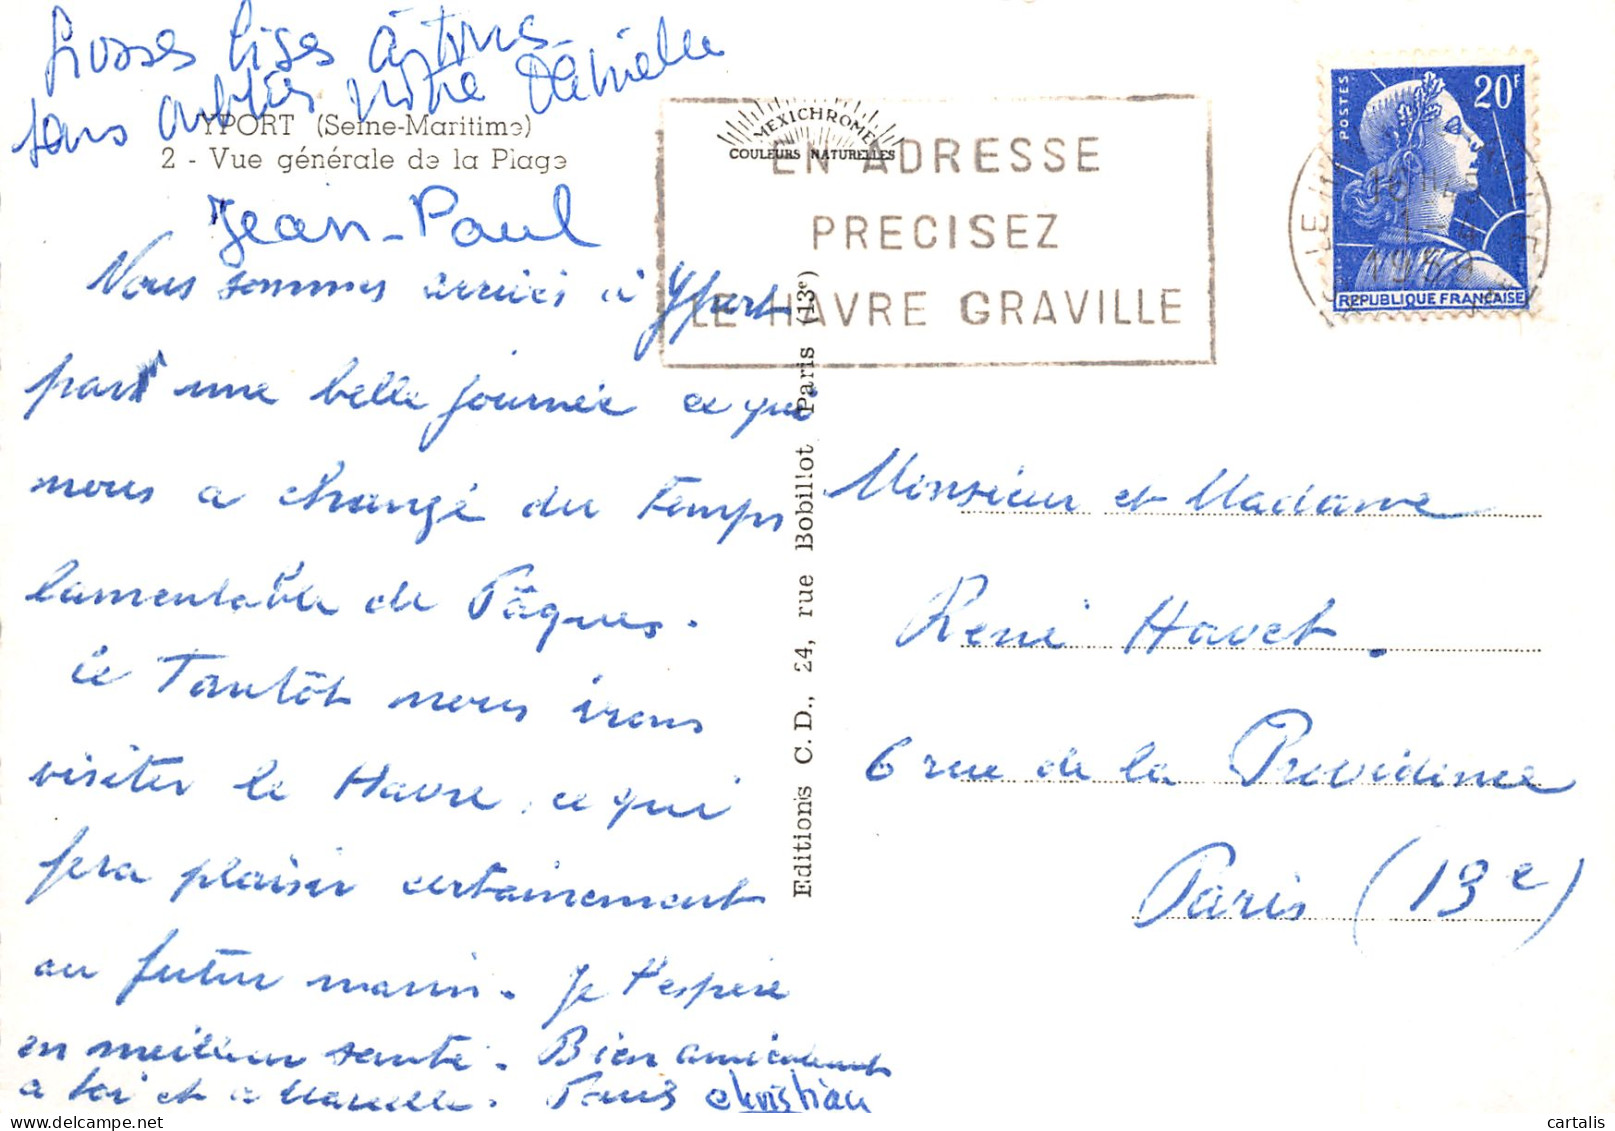 Grosses bises à tous
sans oublier notre Danielle
YPORT (Seine-Maritime)
2 - Vue générale de la Plage
Jean-Paul
Nous sommes arrivés à Yport
par une belle journée ce qui
nous a changé du temps
lamentable de Pâques.
Ce Tantôt nous irons
visiter le Havre, ce qui
fera plaisir certainement
au futur marin. Je t'espère
en meilleure santé. Bien amicalement
a toi et a Marcelle. Paul Christian
Editions C. D., 24, rue Bobillot Paris (13e)
MEXICHROME
COULEURS NATURELLES
EN ADRESSE
PRECISEZ
LE HAVRE GRAVILLE
POSTES
20F
REPUBLIQUE FRANÇAISE
LE
10 H 45
Monsieur et Madame
René Havet.
6 rue de la Providence
Paris (13e)
cartalis